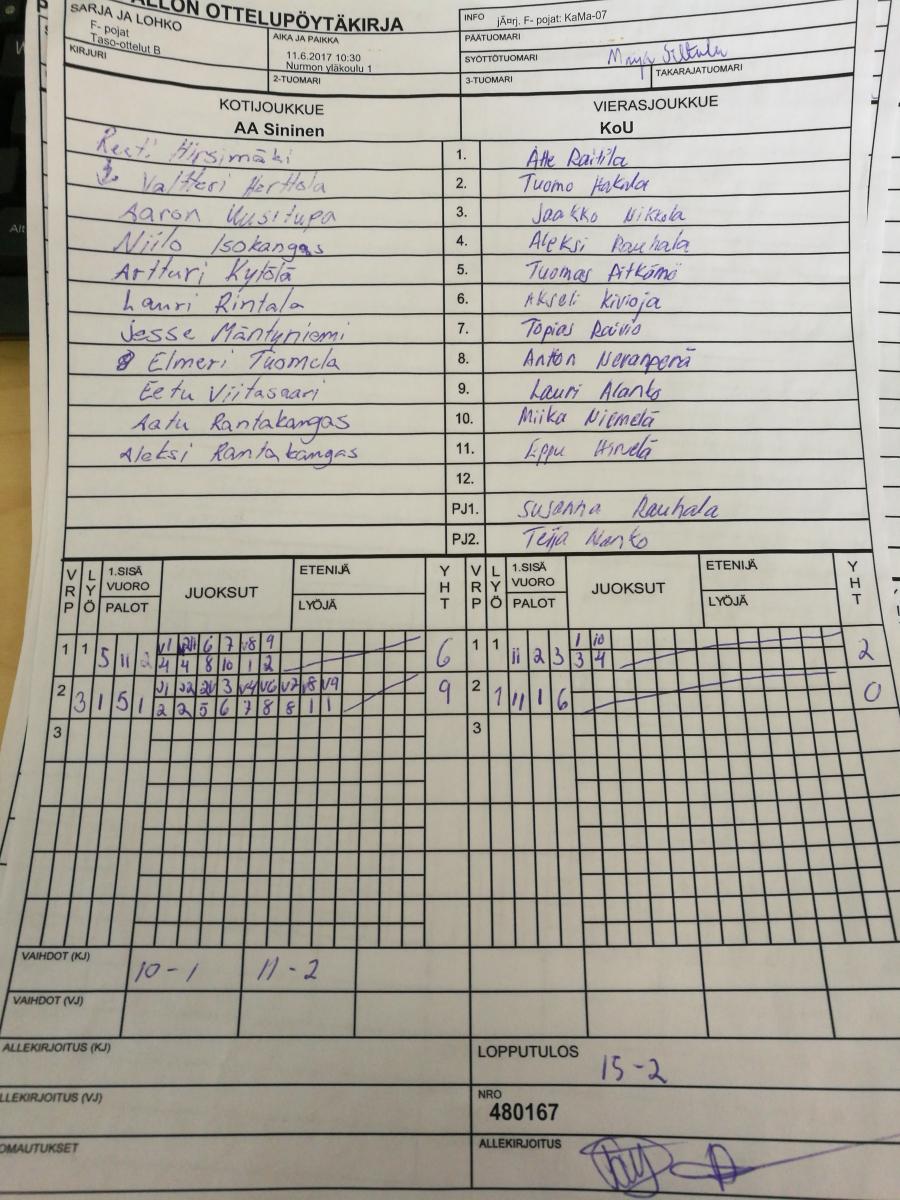 ALLON OTTELUPÖYTÄKIRJA
SARJA JA LOHKO
F- pojat
Taso-ottelut B
KIRJURI
AIKA JA PAIKKA
11.6.2017 10:30
Nurmon yläkoulu 1
2-TUOMARI
INFO jÃ¤rj. F- pojat: KaMa-07
PÄÄTUOMARI
SYÖTTÖTUOMARI
3-TUOMARI TAKARAJATUOMARI
KOTIJOUKKUE VIERASJOUKKUE
AA Sininen KoU
Hirsimäki 1. Atte Raitila
Valtteri Herttola 2. Tuomo Hakala
Aaron Uusitupa 3. Jaakko Nikkola
Niilo Isokangas 4. Aleksi Rauhala
Artturi Kytölä 5. Tuomas Pitkämö
Lauri Rintala 6. Akseli Kivioja
Jesse Mäntyniemi 7. Topias Raivio
8 Elmeri Tuomela 8. Anton Nevanperä
Eetu Viitasaari 9. Lauri Alanko
Aatu Rantakangas 10. Miika Niemelä
Aleksi Rantakangas 11. Eppu Hirvelä
12.
PJ1. Susanna Rauhala
PJ2. Teija
VRP LYÖ 1.SISÄ VUORO PALOT JUOKSUT ETENIJÄ LYÖJÄ YHT VRP LYÖ 1.SISÄ VUORO PALOT JUOKSUT ETENIJÄ LYÖJÄ YHT
1 1 5 11 2 6 7 v8 9 6 1 1 11 2 3 1 10 2
4 4 8 10 1 2 3 4
2 3 1 5 1 3 v4 v6 v7 v8 v9 9 2 1 11 1 6 0
2 2 5 6 7 8 8 1 1
3 3
VAIHDOT (KJ) 10-1 11-2
VAIHDOT (VJ)
ALLEKIRJOITUS (KJ)
LOPPUTULOS 15-2
LLEKIRJOITUS (VJ)
NRO
480167
OMAUTUKSET
ALLEKIRJOITUS